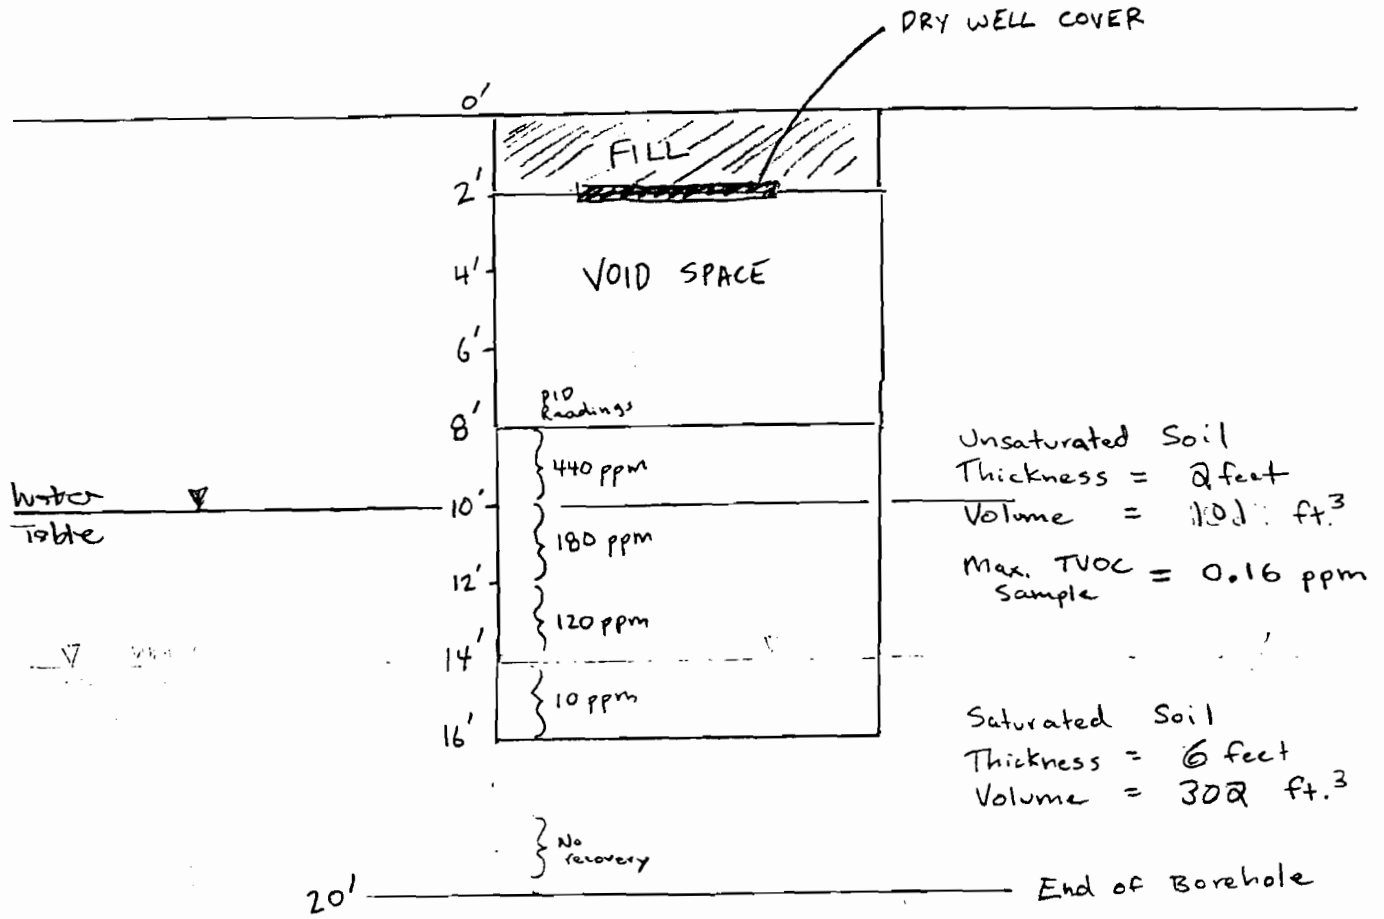 DRY WELL COVER
0'
FILL
2'
4'
VOID SPACE
6'
PID
Readings
8'
440 ppm
Water
Table
10'
180 ppm
12'
120 ppm
14'
10 ppm
16'
No
recovery
20'
End of Borehole
Unsaturated Soil
Thickness = 2 feet
Volume = 101 ft.³
Max. TVOC = 0.16 ppm
Sample
Saturated Soil
Thickness = 6 feet
Volume = 302 ft.³